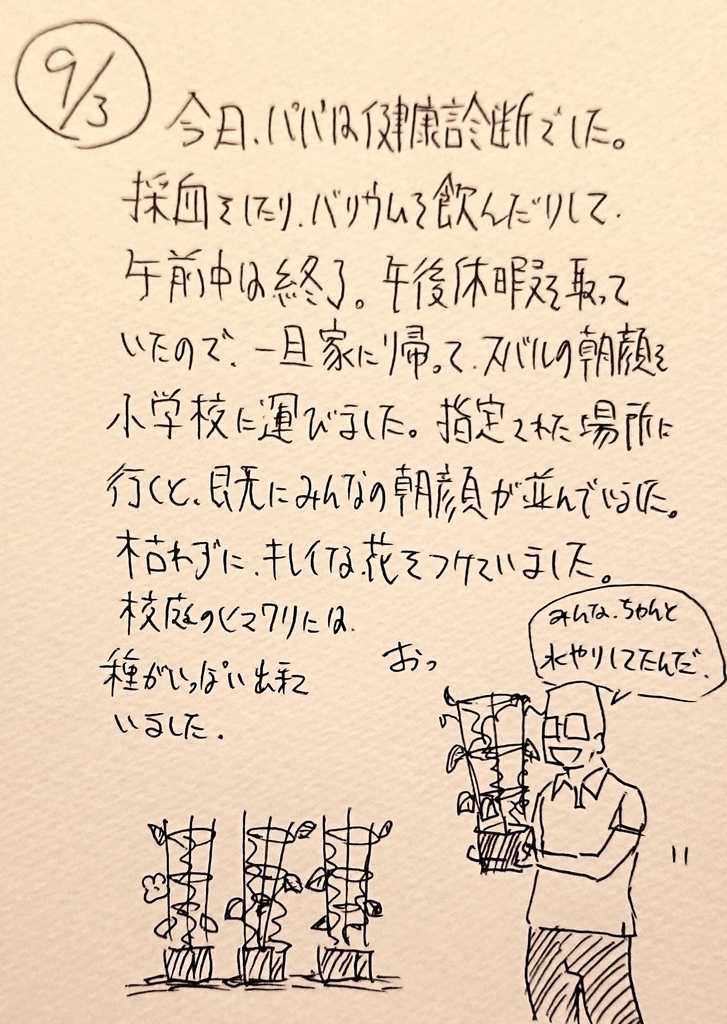 9/3
今日、パパは健康診断でした。
採血をしたり、バリウムを飲んだりして、
午前中は終了。午後休暇を取って
いたので、一旦家に帰って、スバルの朝顔を
小学校に運びました。指定された場所に
行くと、既にみんなの朝顔が並んでいました。
枯れずに、キレイな花をつけていました。
校庭のヒマワリには
種がいっぱい出来て
いました。
おっ
みんな、ちゃんと
水やりしてたんだ。